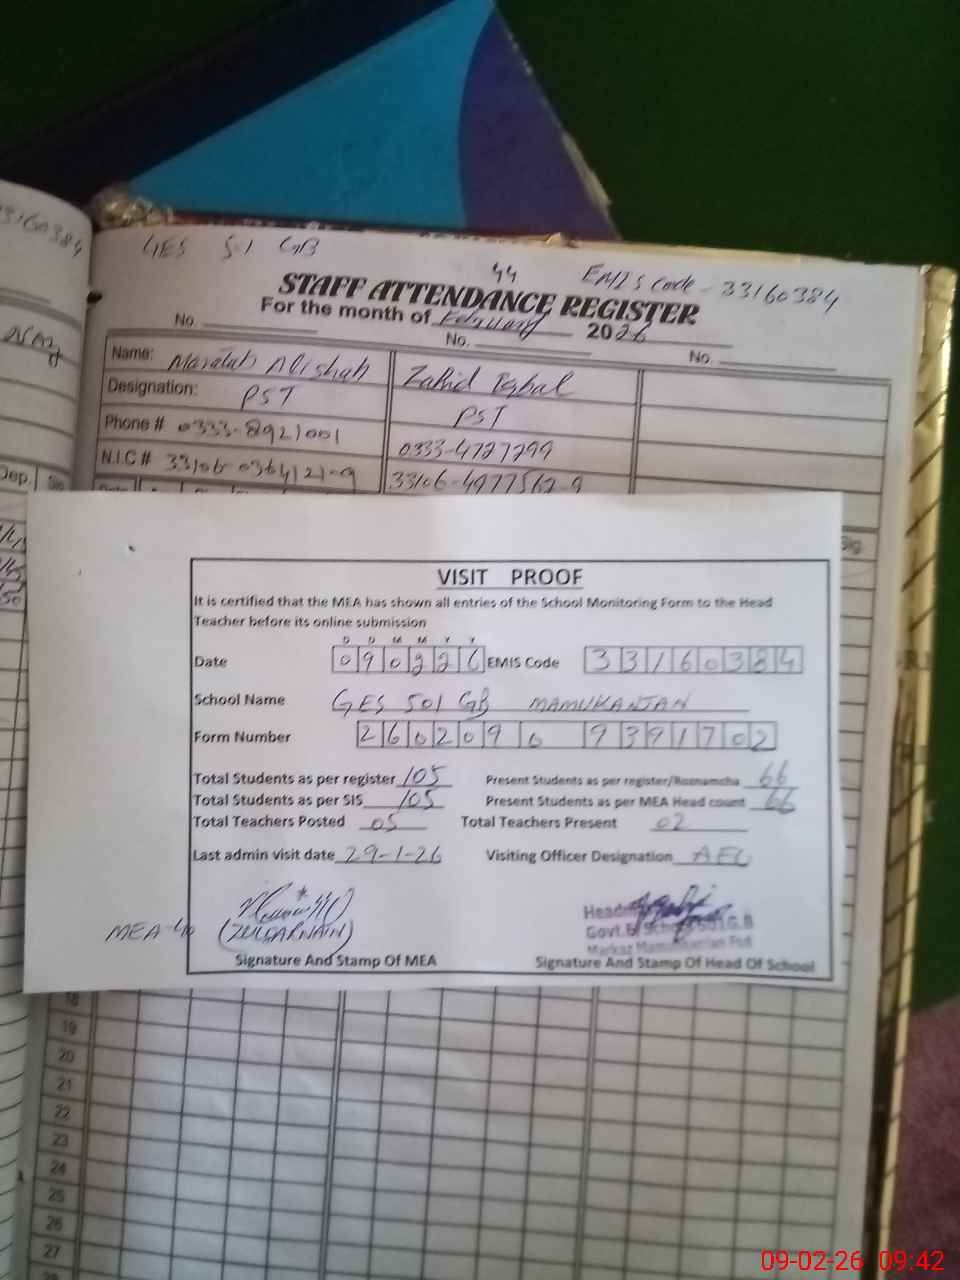 33160384
GES 501 GB
44 EMIS Code - 33160384
STAFF ATTENDANCE REGISTER
For the month of February 2026
No. No. No.
Name: Alishah Zahid Iqbal
Designation: PST PST
Phone # 0333-8921001 0333-4727299
N.I.C # 33106-0364121-9 33106-4977562-9
Dep. Sig
Sig.
VISIT PROOF
It is certified that the MEA has shown all entries of the School Monitoring Form to the Head
Teacher before its online submission
D D M M Y Y
Date 090226 EMIS Code 33160384
School Name GES 501 GB MAMUKANJAN
Form Number 2602090 9391702
Total Students as per register 105 Present Students as per register/Roznamcha 66
Total Students as per SIS 105 Present Students as per MEA Head count 66
Total Teachers Posted 05 Total Teachers Present 02
Last admin visit date 29-1-26 Visiting Officer Designation AEO
Govt. E/School 501 G.B
MEA-40 (ZULQARNAIN)
Signature And Stamp Of MEA Signature And Stamp Of Head Of School
18
19
20
21
22
23
24
25
26
27
09-02-26 09:42